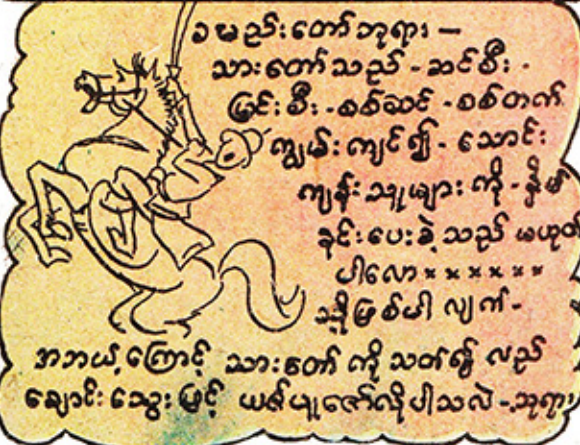 ခမည်းတော်ဘုရား —
သားတော်သည် - ဆင်စီး -
မြင်းစီး - စစ်ဆင် - စစ်တက်
ကျွမ်းကျင်၍ - သောင်း
ကျန်းသူများကို - နှိမ်
နင်းပေးခဲ့သည် မဟုတ်
ပါလော × × × × × ×
သို့ဖြစ်ပါလျက် -
အဘယ့်ကြောင့် သားတော်ကို သတ်၍ လည်
ချောင်းသွေးဖြင့် ယဇ်ပူဇော်လိုပါသလဲ - ဘုရား